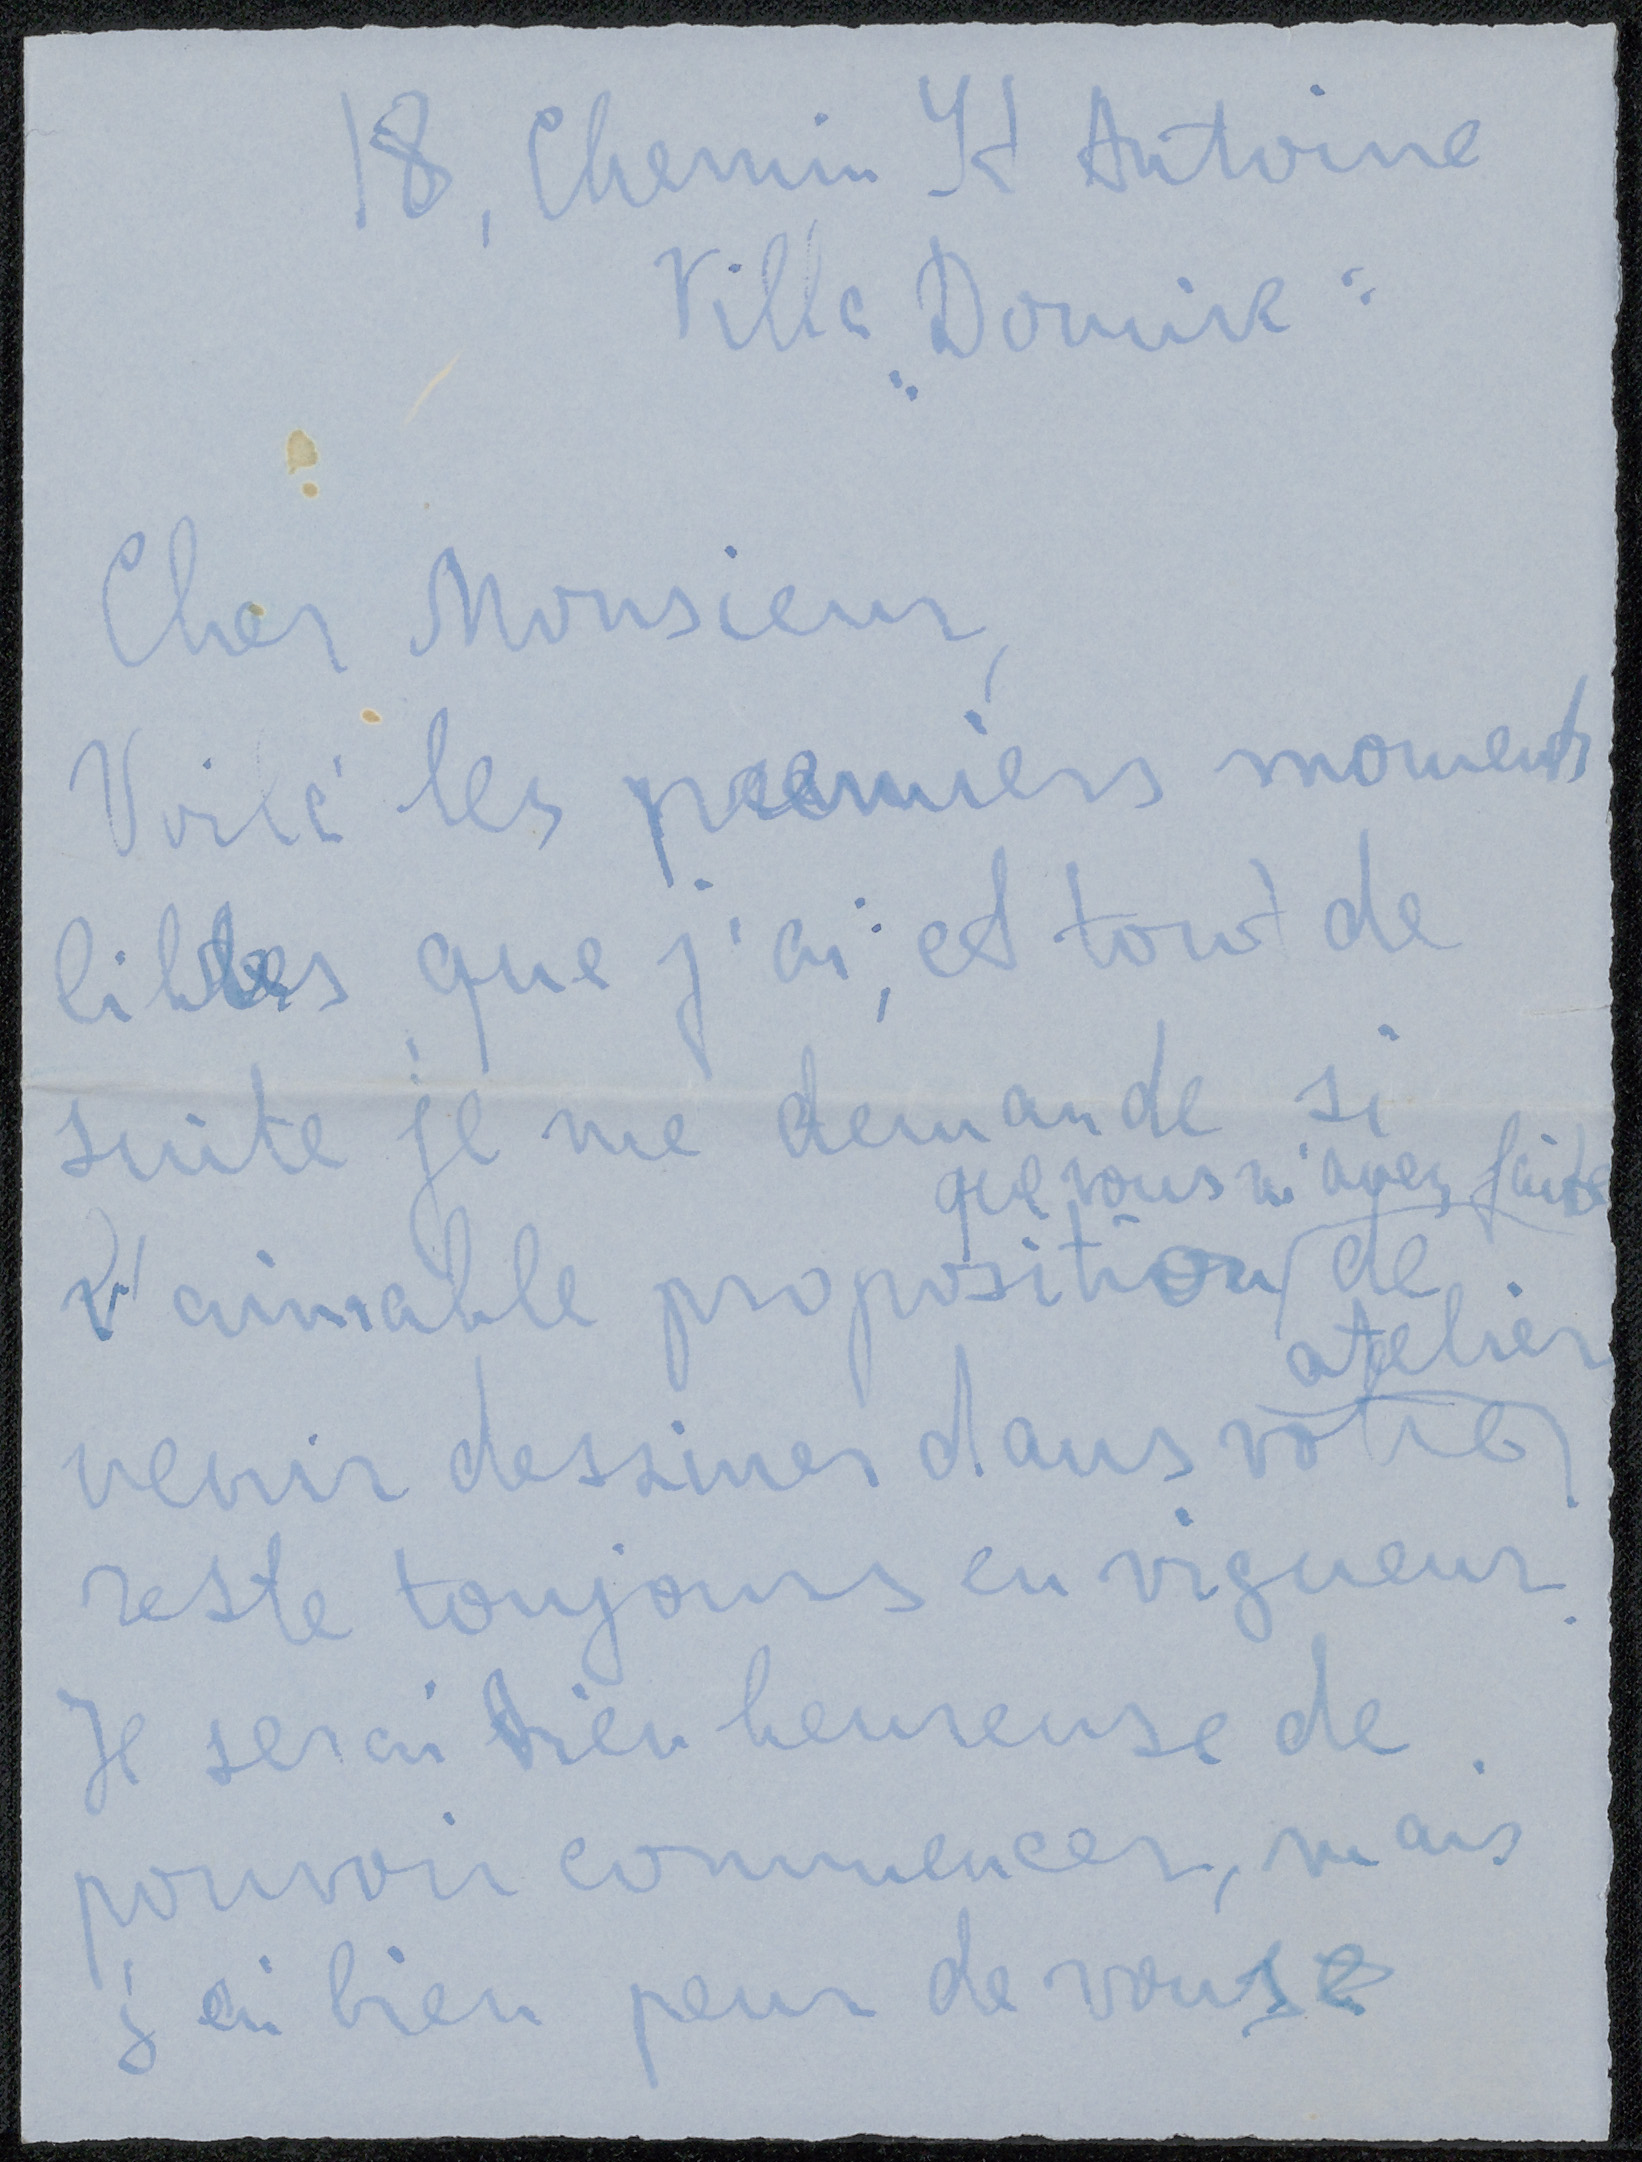 18, Chemin St Antoine
Villa „Domise“
Cher Monsieur,
Voilà les premiers moments
libres que j'ai, et tout de
suite je me demande si
l'aimable proposition que vous m'avez faite de
venir dessiner dans votre atelier
reste toujours en vigueur.
Je serai bien heureuse de
pouvoir commencer, mais
j'ai bien peur de vous